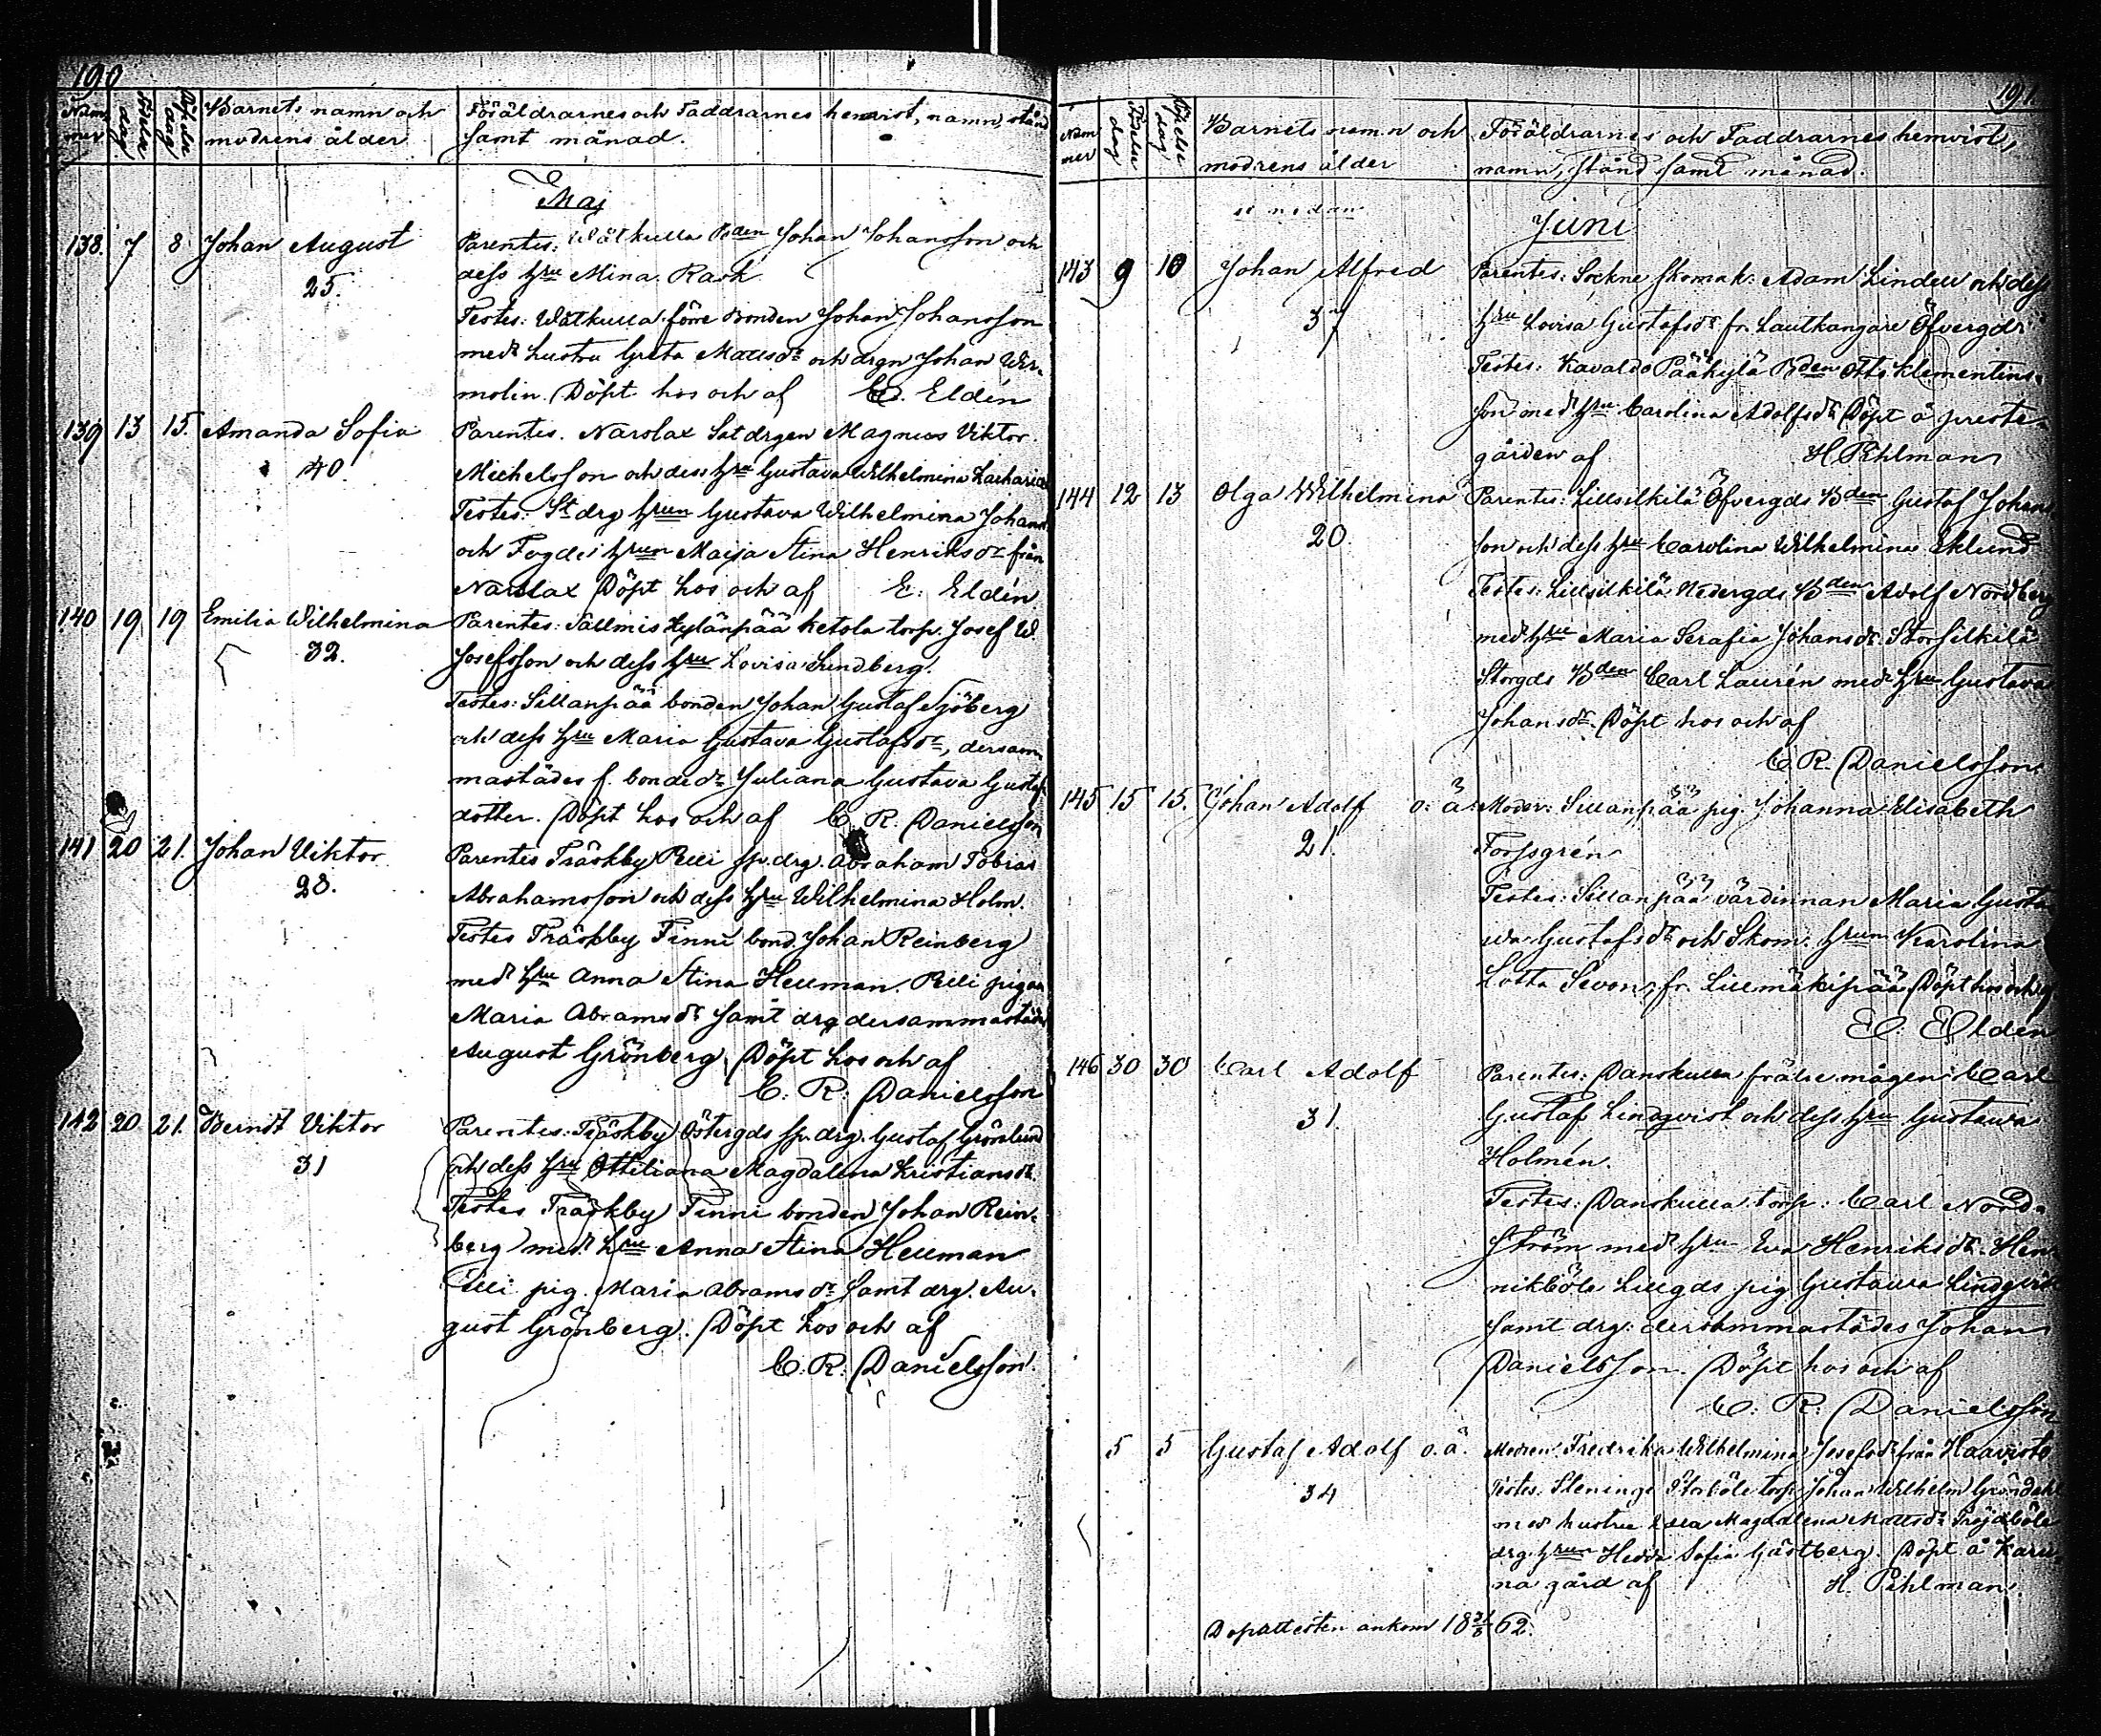 190
Nummer Födelsedag Döpelsedag Barnets namn och Föräldrarnes och Faddrarnes hemvist, namn, stånd
modrens ålder samt månad.
Maj
138. 7 8 Johan August Parentes: Wätkulla Bden Johan Johansson och
25. dess hru Mina Rask
Testes: Wätkulla förre Bonden Johan Johansson
med hustru Greta Mattsdr och drgn Johan Wir-
molin. Döpt hos och af E. Eldén
139 13 15. Amanda Sofia Parentes. Narslax Sat drgen Magnus Viktor
40 Michelsson och dess hru Gustava Wilhelmina Zacharia
Testes: St drg hrun Gustava Wilhelmina Johans
och Fogdes hrun Maija Stina Henriksdr från
Narslax Döpt hos och af E. Eldén
140 19 19 Emilia Wilhelmina Parentes: Sällmis Kylänpää Ketola torp. Josef W.
32. Josefsson och dess hru Lovisa Sundberg.
Testes: Sillanpää bonden Johan Gustaf Sjöberg
och dess hru Maria Gustava Gustafsdr, dersam-
mastädes f. bondedr Juliana Gustava Gustafs
dotter. Döpt hos och af C. R. Danielsson
141 20 21. Johan Viktor Parentes Träskby Pelli sp. drg. Abraham Tobias
28. Abrahamsson och dess hru Wilhelmina Holm.
Testes Träskby Finni bond. Johan Reinberg
med hru Anna Stina Hellman. Pelli pigan
Maria Abramsdr samt drg dersammastädes
August Grönberg Döpt hos och af
C. R. Danielsson
142 20. 21. Berndt Viktor Parentes: Träskby Östergds sp. drg. Gustaf Grönlund
31 och dess hru Ottiliana Magdalena Kristiansdr.
Testes Träskby Finni bonden Johan Rein-
berg med hru Anna Stina Hellman
Pelli pig. Maria Abramsdr samt drg. Au-
gust Grönberg. Döpt hos och af
C. R. Danielsson.
191.
Nummer Födelsedag Döpelsedag Barnets namn och Föräldrarnes och Faddrarnes hemvist,
modrens ålder namn, stånd samt månad.
se nedan
Juni
143 9 10 Johan Alfred Parentes: Sockne skomak. Adam Lindell och dess
37 hru Lovisa Gustafsdr fr. Lautkangare Öfvergds
Testes: Kavaldo Pääkylä Bden Otto Klementins-
son med hru Carolina Adolfsdr Döpt å preste-
gården af H. Pihlman
144 12 13 Olga Wilhelmina Parentes: Lillsilkilä Öfvergds Bden Gustaf Johans
20. son och dess hru Carolina Wilhelmina Eklund
Testes: Lillsilkilä Nedergds Bden Adolf Nordberg
med hru Maria Serafia Johansdr. Storsilkilä
Storgds Bden Carl Laurén med hru Gustava
Johansdr. Döpt hos och af
C. R. Danielsson.
145 15 15. Johan Adolf o. ä. Moder: Sillanpää pig. Johanna Elisabeth
21. Forssgrén
Testes: Sillanpää värdinnan Maria Gusta
va Gustafsdr och Skom. hrun Karolina
Lotta Sevon, fr. Lillmäkipää Döpt hos och af
E. Eldén
146 30 30 Carl Adolf Parentes: Danskulla frälse mågen Carl
31. Gustaf Lindqvist och dess hru Gustava
Holmén.
Testes: Danskulla torp: Carl Nord-
ström med hru Eva Henriksdr. Hen
rikböle Lillgds pig Gustava Lindqvist
samt drg: dersammastädes Johan
Danielsson. Döpt hos och af
C. R. Danielsson
5 5 Gustaf Adolf o.ä. Modren Fredrika Wilhelmina Josefsdr från Haavisto
34 Testes: Sleninge Storböle torp. Johan Wilhelm Gröndahl
med hustru Magdalena Mattsdr Fröjdböle
drg. hrun Hedda Sofia Gästberg. Döpt å Karu
na gård af H. Pihlman.
Dopattesten ankom 18 31/8 62.